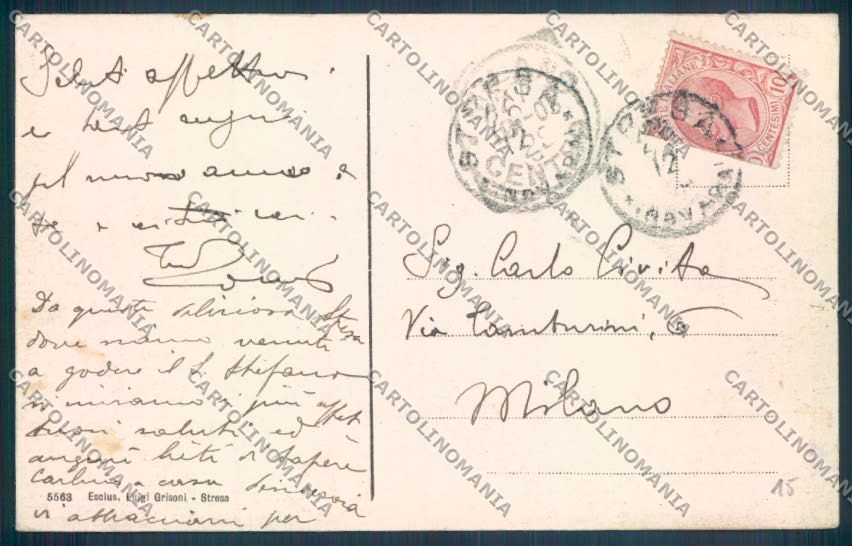 Saluti affettuosi
e tanti auguri
pel nuovo anno a
te e ai tuoi cari
Da questa deliziosa Stresa
dove siamo venuti
a godere il S. Stefano
vi inviamo i più affet
tuosi saluti ed
auguri lieti di sapere
Carlino a casa
vi abbracciamo per
5563 Esclus. Luigi Grisoni - Stresa
STRESA
NOVARA
CENT
STRESA
NOVARA
POSTE ITALIANE
CENTESIMI 10
Sig. Carlo Civita
Via Tamburini, 6
Milano
15
CARTOLINOMANIA